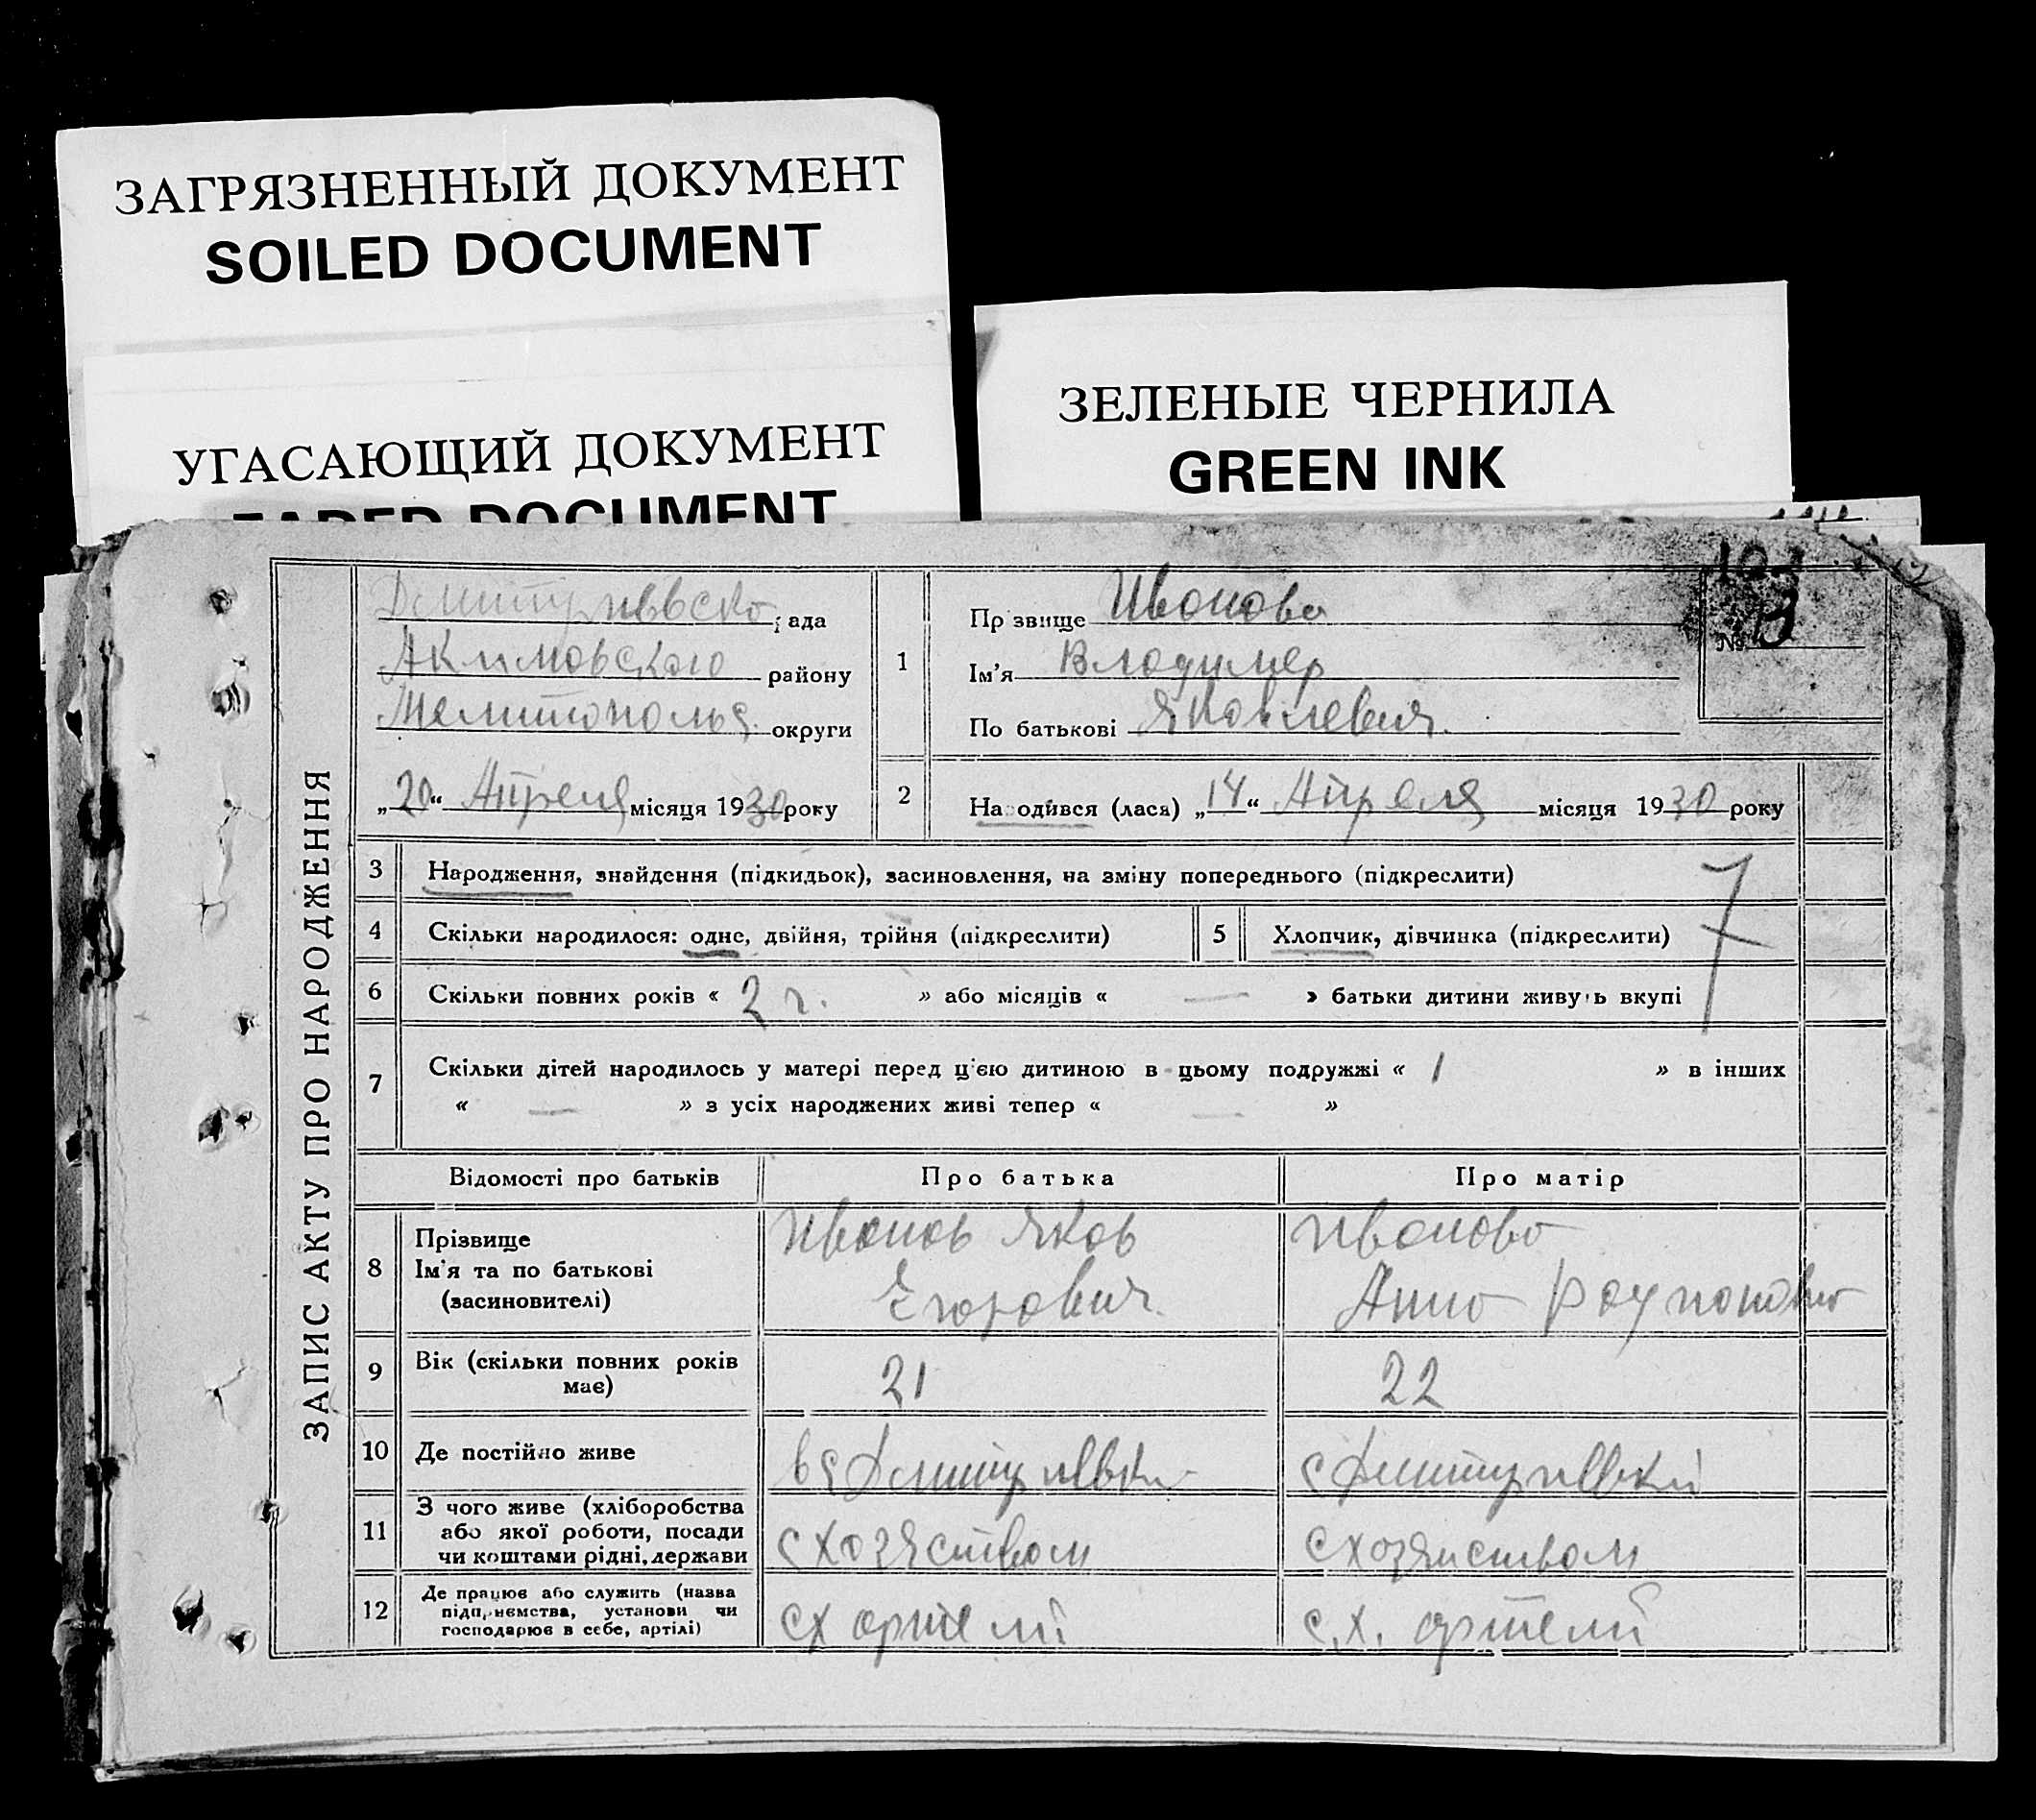 ЗАГРЯЗНЕННЫЙ ДОКУМЕНТ
SOILED DOCUMENT
УГАСАЮЩИЙ ДОКУМЕНТ
FADED DOCUMENT
ЗЕЛЕНЫЕ ЧЕРНИЛА
GREEN INK
ЗАПИС АКТУ ПРО НАРОДЖЕННЯ
рада
Акимовского району
Мелитопольс. округи
„20“ Апреля місяця 1930 року
1
Прізвище Иванова
Ім'я Владимер
По батькові Яковлевич.
№ 13
2
Народився (лася) „14“ Апреля місяця 1930 року
3 Народження, знайдення (підкидьок), засиновлення, на зміну попереднього (підкреслити)
7
4 Скільки народилося: одне, двійня, трійня (підкреслити)
5 Хлопчик, дівчинка (підкреслити)
6 Скільки повних років « 2 г. » або місяців « — » батьки дитини живуть вкупі
7 Скільки дітей народилось у матері перед цією дитиною в цьому подружжі « 1 » в інших
« — » з усіх народжених живі тепер « — »
Відомості про батьків Про батька Про матір
8 Прізвище
Ім'я та по батькові
(засиновителі)
Иванов Яков
Егорович.
Иванова
Анна
9 Вік (скільки повних років
має)
21
22
10 Де постійно живе
11 З чого живе (хліборобства
або якої роботи, посади
чи коштами рідні, держави
схозяством
схозяйством
12 Де працює або служить (назва
підприємства, установи чи
господарює в себе, артілі)
сх артели
с.х. артели